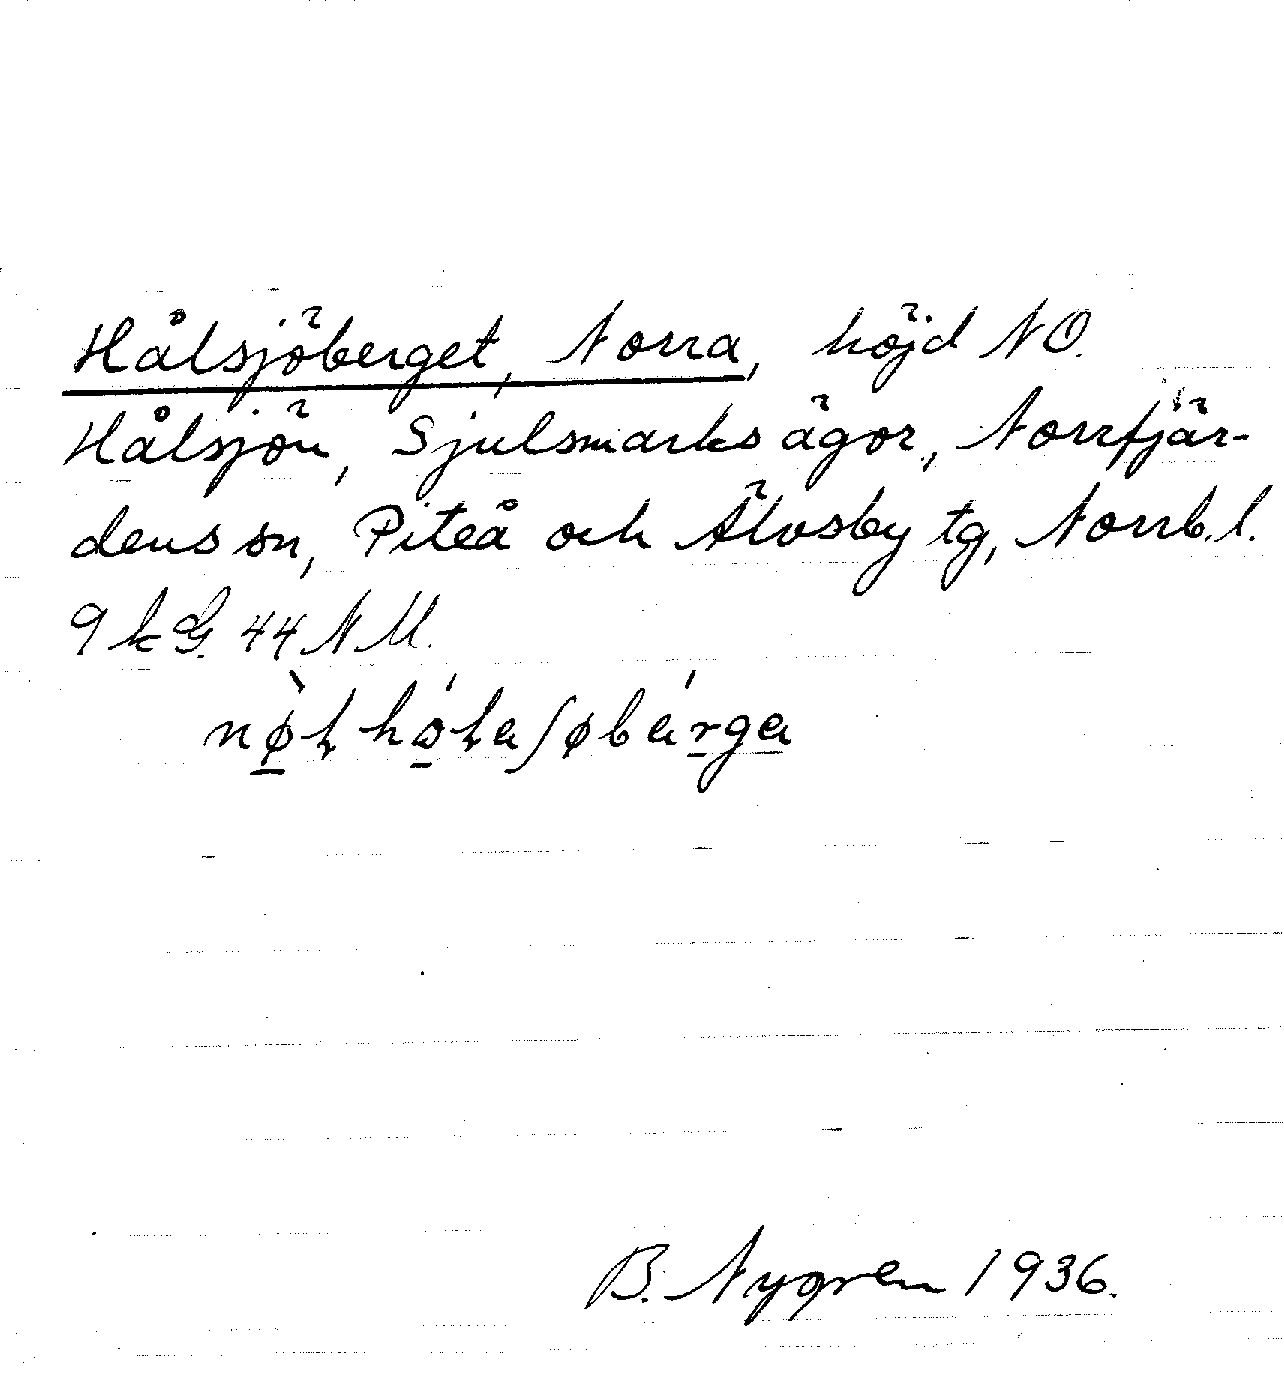 Hålsjöberget, Norra, höjd NO.
Hålsjön, Sjulsmarks ägor, Norrfjär-
dens sn, Piteå och Älvsby tg, Norrb.l.
9 k G. 44 N M.
B. Nygren 1936.